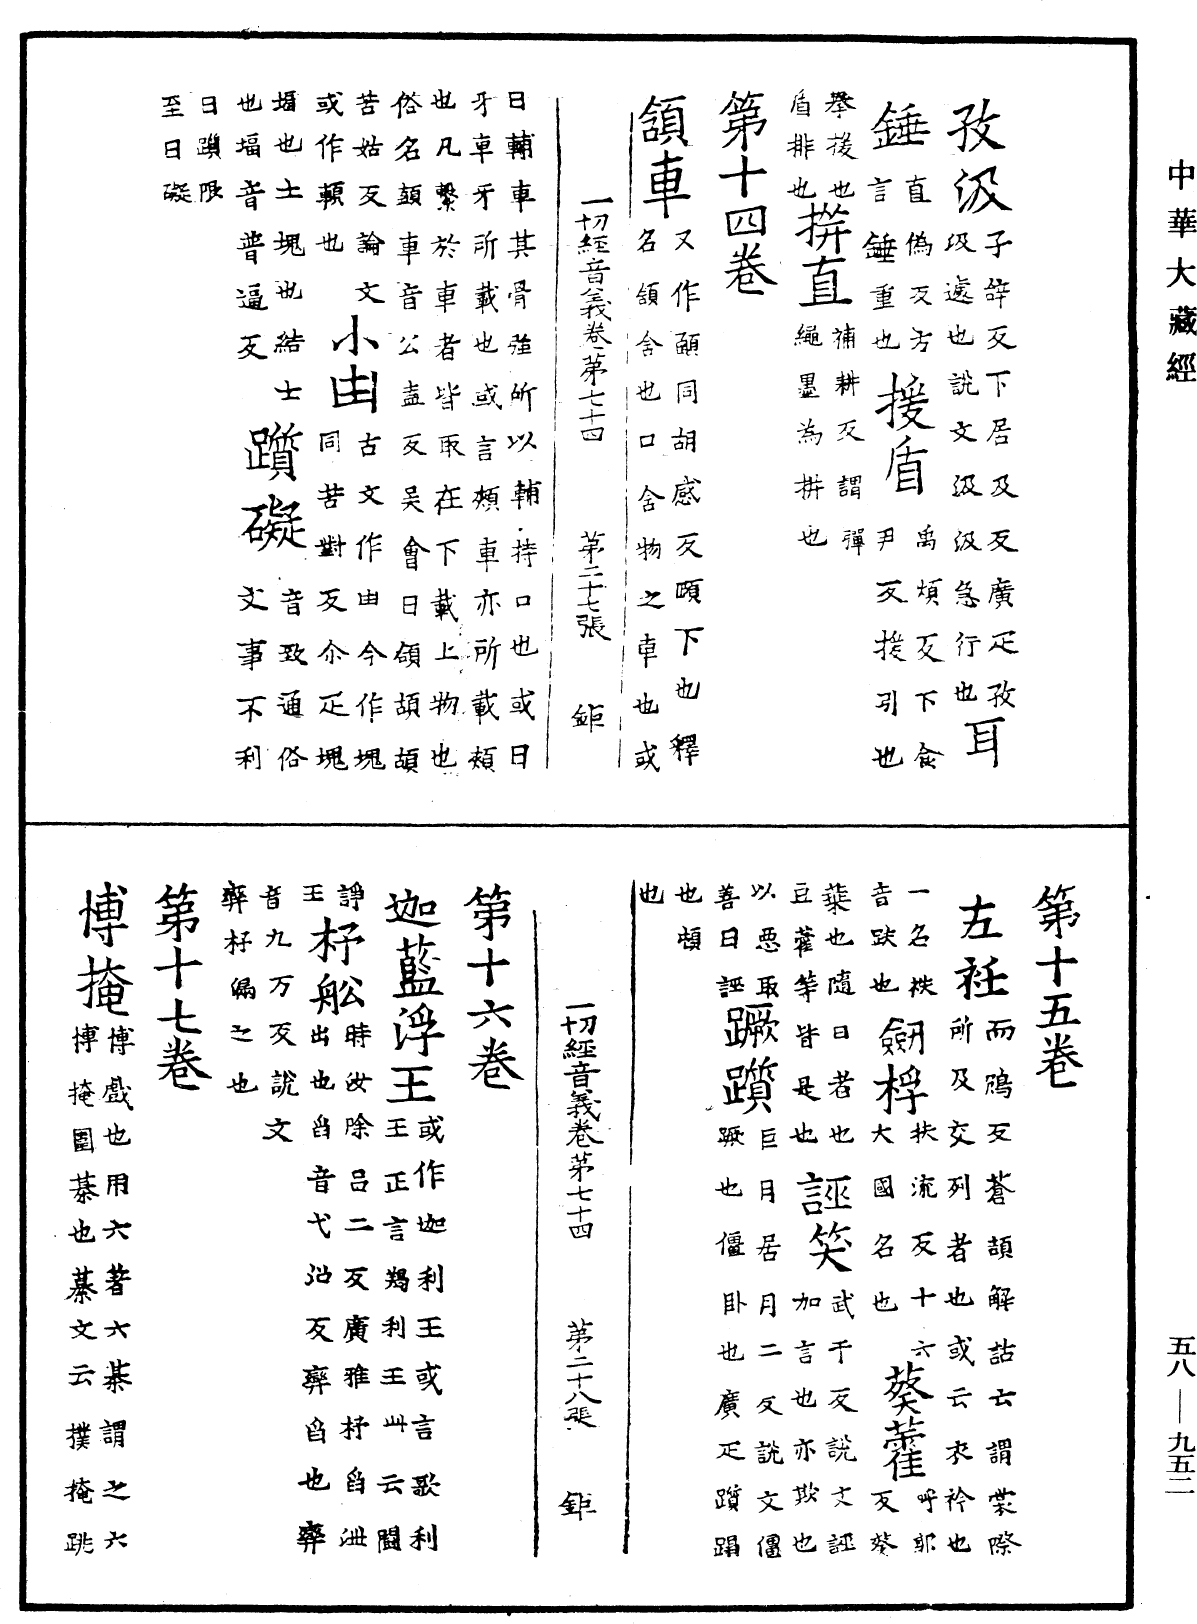 中華大藏經
孜汲子辝反下居及反廣疋孜
汲汲遽也說文汲汲急行也耳
錘直偽反方
言錘重也
援盾禹煩反下食
尹反援引也
擧援也
盾排也
拼直補耕反謂彈
繩墨為拼也
第十四卷
頷車又作顄同胡感反頤下也釋
名頷含也口含物之車也或
一切經音義卷第七十四　第二十七張　鉅
曰輔車其骨强所以輔持口也或曰
牙車牙所載也或言頰車亦所載頰
也凡繫於車者皆取在下載上物也
俗名顄車音公盍反吳會曰頷頡頡
苦姑反論文
或作顂也
小凷古文作凷今作塊
同苦對反尒疋塊
堛也土塊也結士
也堛音普逼反
躓礙音致通俗
文事不利
曰躓限
至曰礙
第十五卷
左衽而鴆反蒼頡解詁云謂裳際
所及交列者也或云衣衿也
一名袟
音跌也
劒桴扶流反十六
大國名也
葵藿呼郭
反葵
葉也隨日者也
豆藿等皆是也
誣笑武于反說文誣
加言也亦欺也
以惡取
善曰誣
蹶躓巨月居月二反說文僵
蹶也僵卧也廣疋躓蹋
也頓
也
一切經音義卷第七十四　第二十八張　鉅
第十六卷
迦藍浮王或作迦利王或言歌利
王正言羯利王此云鬪
諍
王
杼舩時汝除呂二反廣雅杼舀洲
出也舀音弋沼反㪺舀也㪺
音九万反說文
㪺杼漏之也
第十七卷
博掩博戲也用六箸六棊謂之六
博掩圍棊也纂文云撲掩跳
五八—九五二